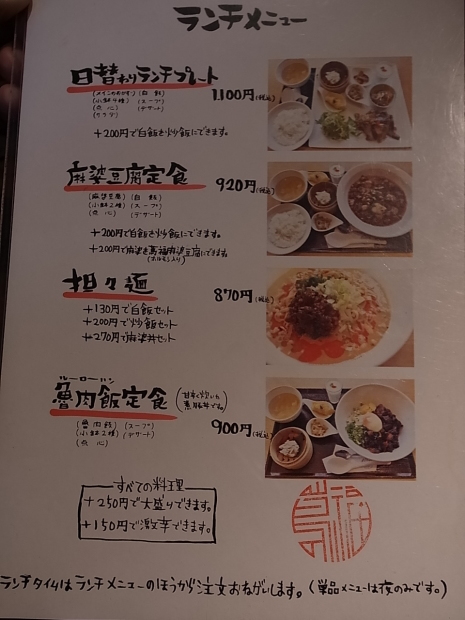 ランチメニュー
日替わりランチプレート
(メインのおかず) (白飯)
(小鉢4種) (スープ)
(点心) (デザート)
(サラダ)
1,100円(税込)
+200円で白飯を炒飯にできます。
麻婆豆腐定食
920円(税込)
(麻婆豆腐) (白飯)
(小鉢2種) (スープ)
(点心) (デザート)
+200円で白飯を炒飯にできます。
+200円で麻婆を馬福麻婆豆腐にできます。
(ホルモン入り)
担々麺
870円(税込)
+130円で白飯セット
+200円で炒飯セット
+270円で麻婆丼セット
ルーローハン
魯肉飯定食
(甘辛く炊いた
豚バラ丼です。)
900円(税込)
(魯肉飯) (スープ)
(小鉢2種) (デザート)
(点心)
すべての料理
+250円で大盛りできます。
+150円で激辛できます。
ランチタイムはランチメニューのほうから注文おねがいします。(単品メニューは夜のみです。)